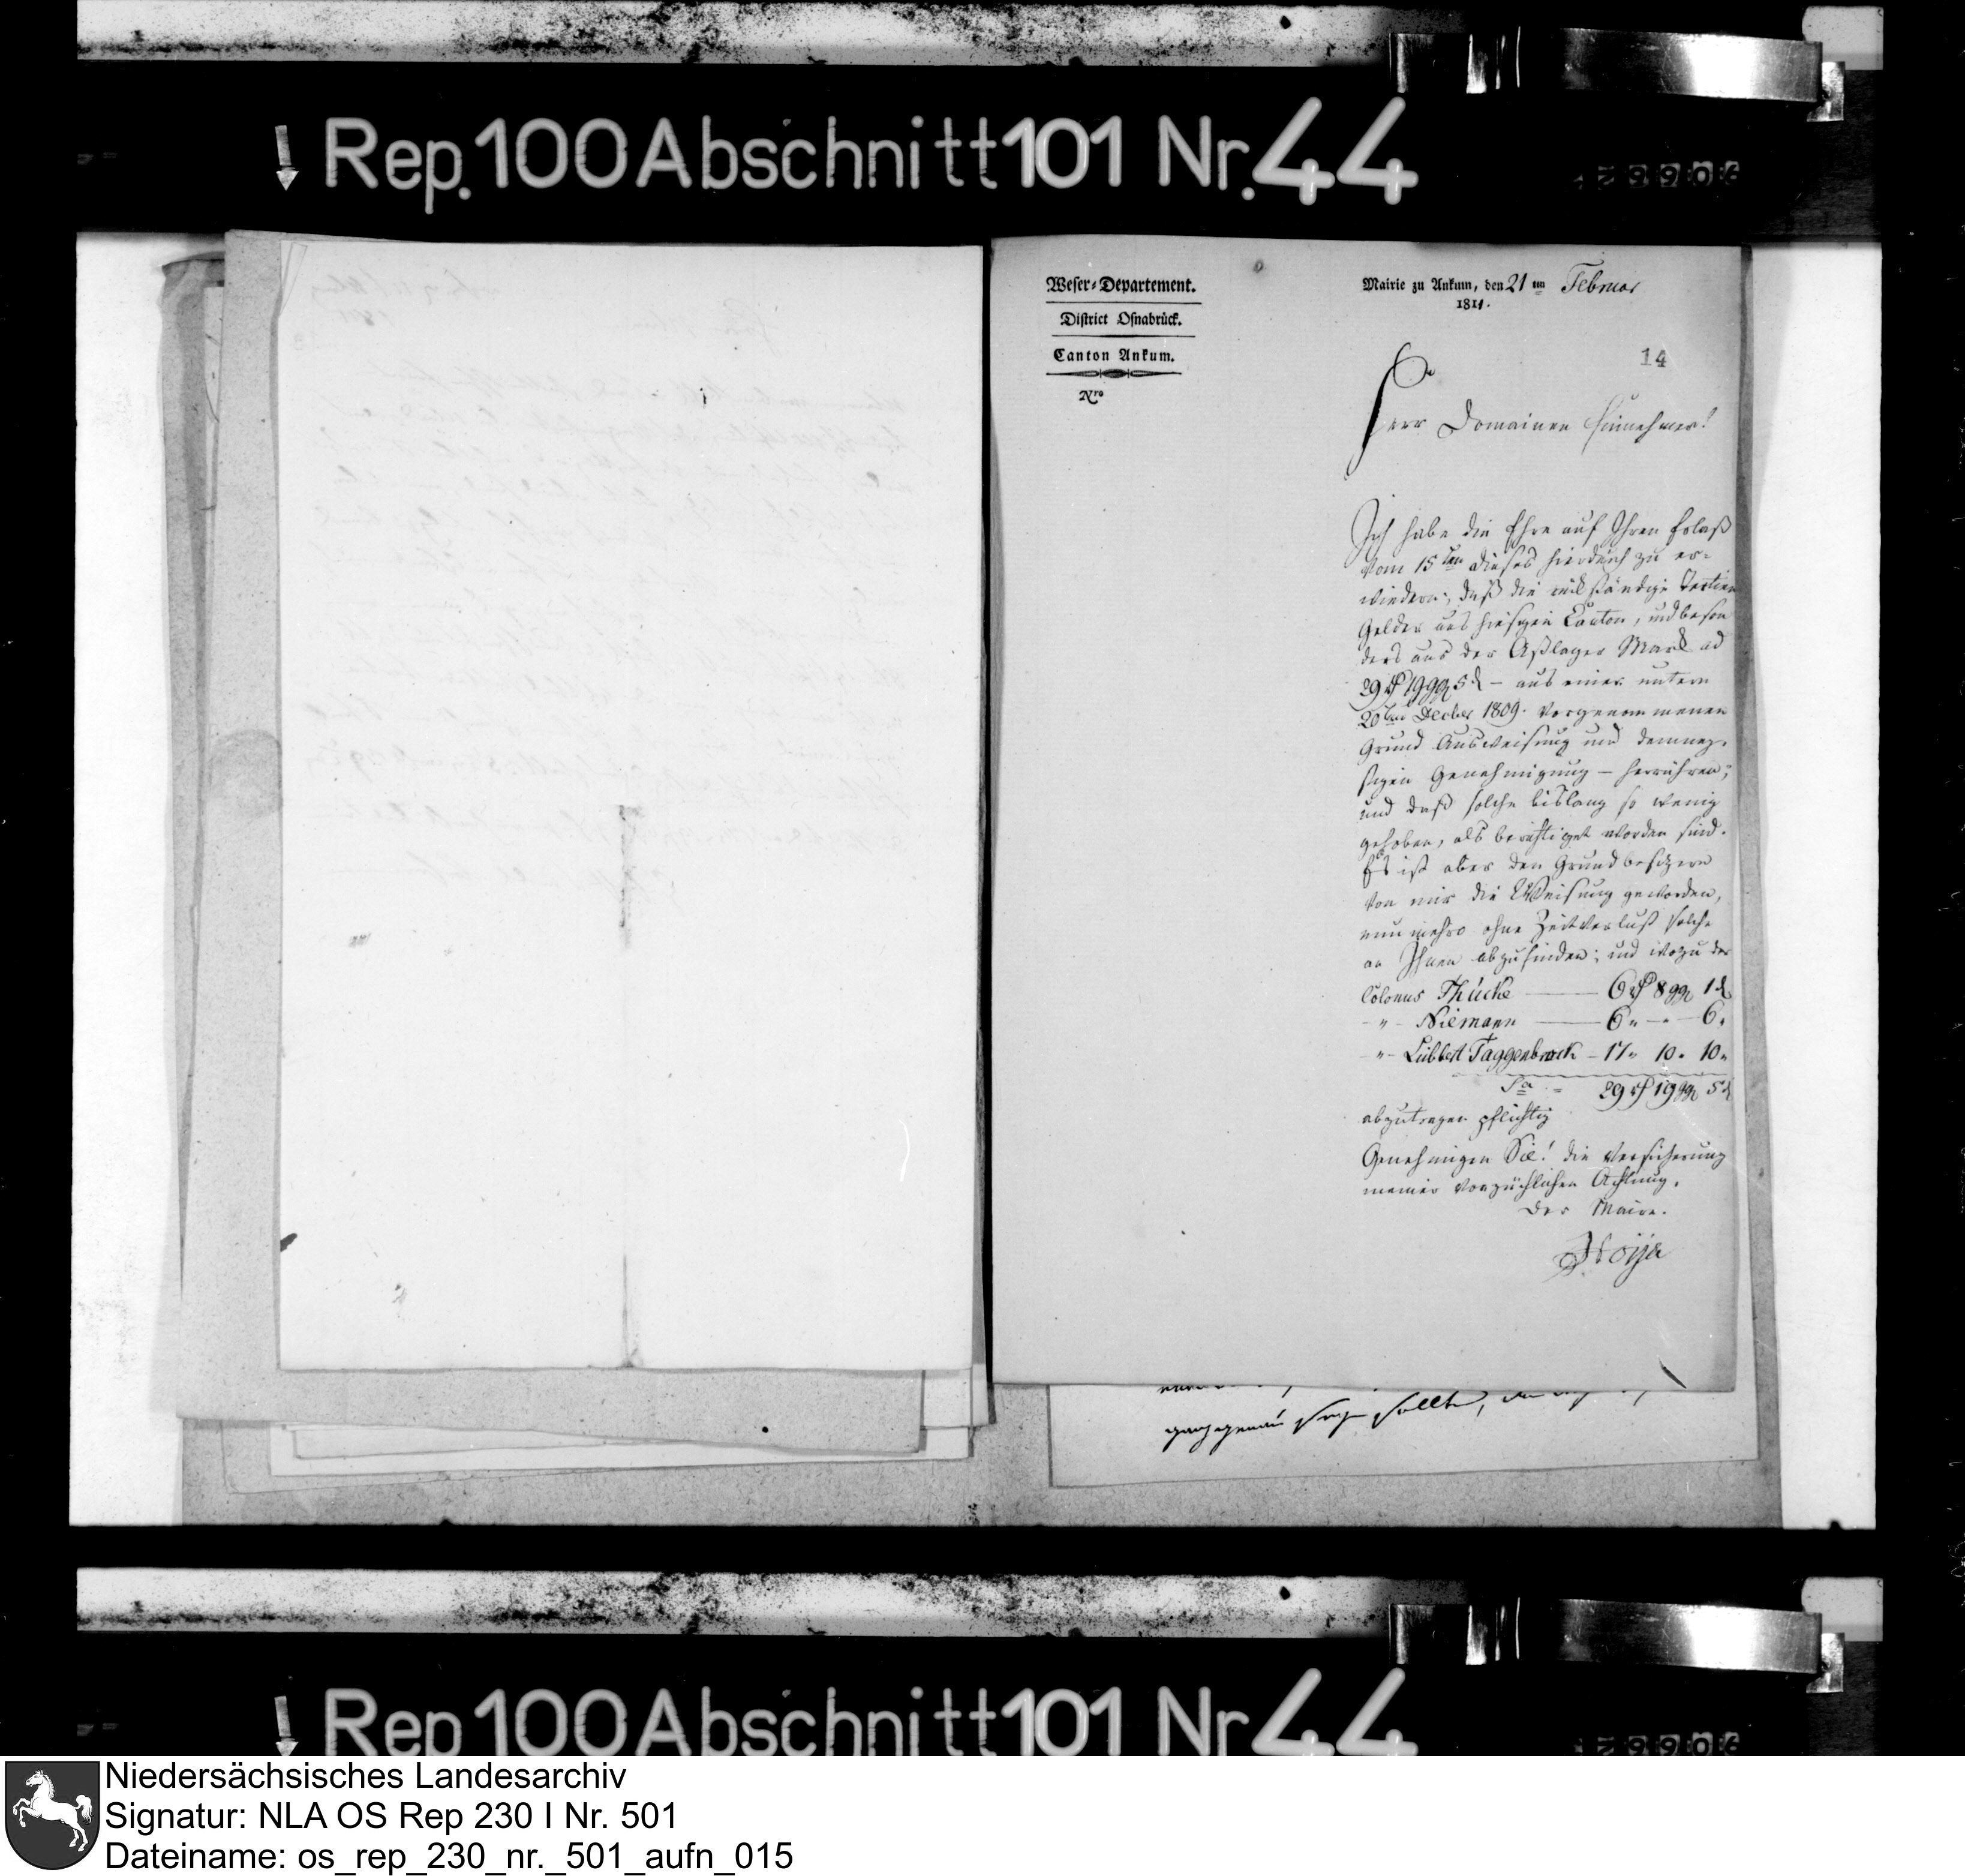 Rep.100 Abschnitt 101 Nr.44
Weser-Departement.
District Osnabrück.
Canton Ankum.
Nro
Mairie zu Ankum, den 21ten Februar
1811.
14
Herr Domainen Einnehmer!
Ich habe die Ehre auf Ihren Erlaß
vom 15ten dieses hierdurch zu er-
wiedern; daß die rückständige Tertien
Gelder aus hiesigen Canton, und beson
ders aus der Aßlager Mark ad
29 rℓ 19 ggr 5 d – aus einer unterm
20ten Decber 1809. vorgenommenen
Grund Ausweisung und
Genehmigung – herrühren;
und daß solche bislang so wenig
gehoben, als berichtiget worden sind.
Es ist aber den Grundbesitzern
von mir die Weisung geworden,
nunmehro ohne Zeitverlust solche
an Ihnen abzufinden; und wozu der
Colonus Thücke — 6 rℓ 8 ggr 1 d
-"- Niemann — 6 " - " - 6 "
-"- Lübbert Taggenbrock – 17 " 10 " 10 "
Sa = 29 rℓ 19 ggr 5 d
abzutragen pflichtig
Genehmigen Sie! die Versicherung
meiner vorzüglichen Achtung.
Der Maire.
Hoÿa
sollte,
Rep 100 Abschnitt 101 Nr 44
Niedersächsisches Landesarchiv
Signatur: NLA OS Rep 230 I Nr. 501
Dateiname: os_rep_230_nr._501_aufn_015